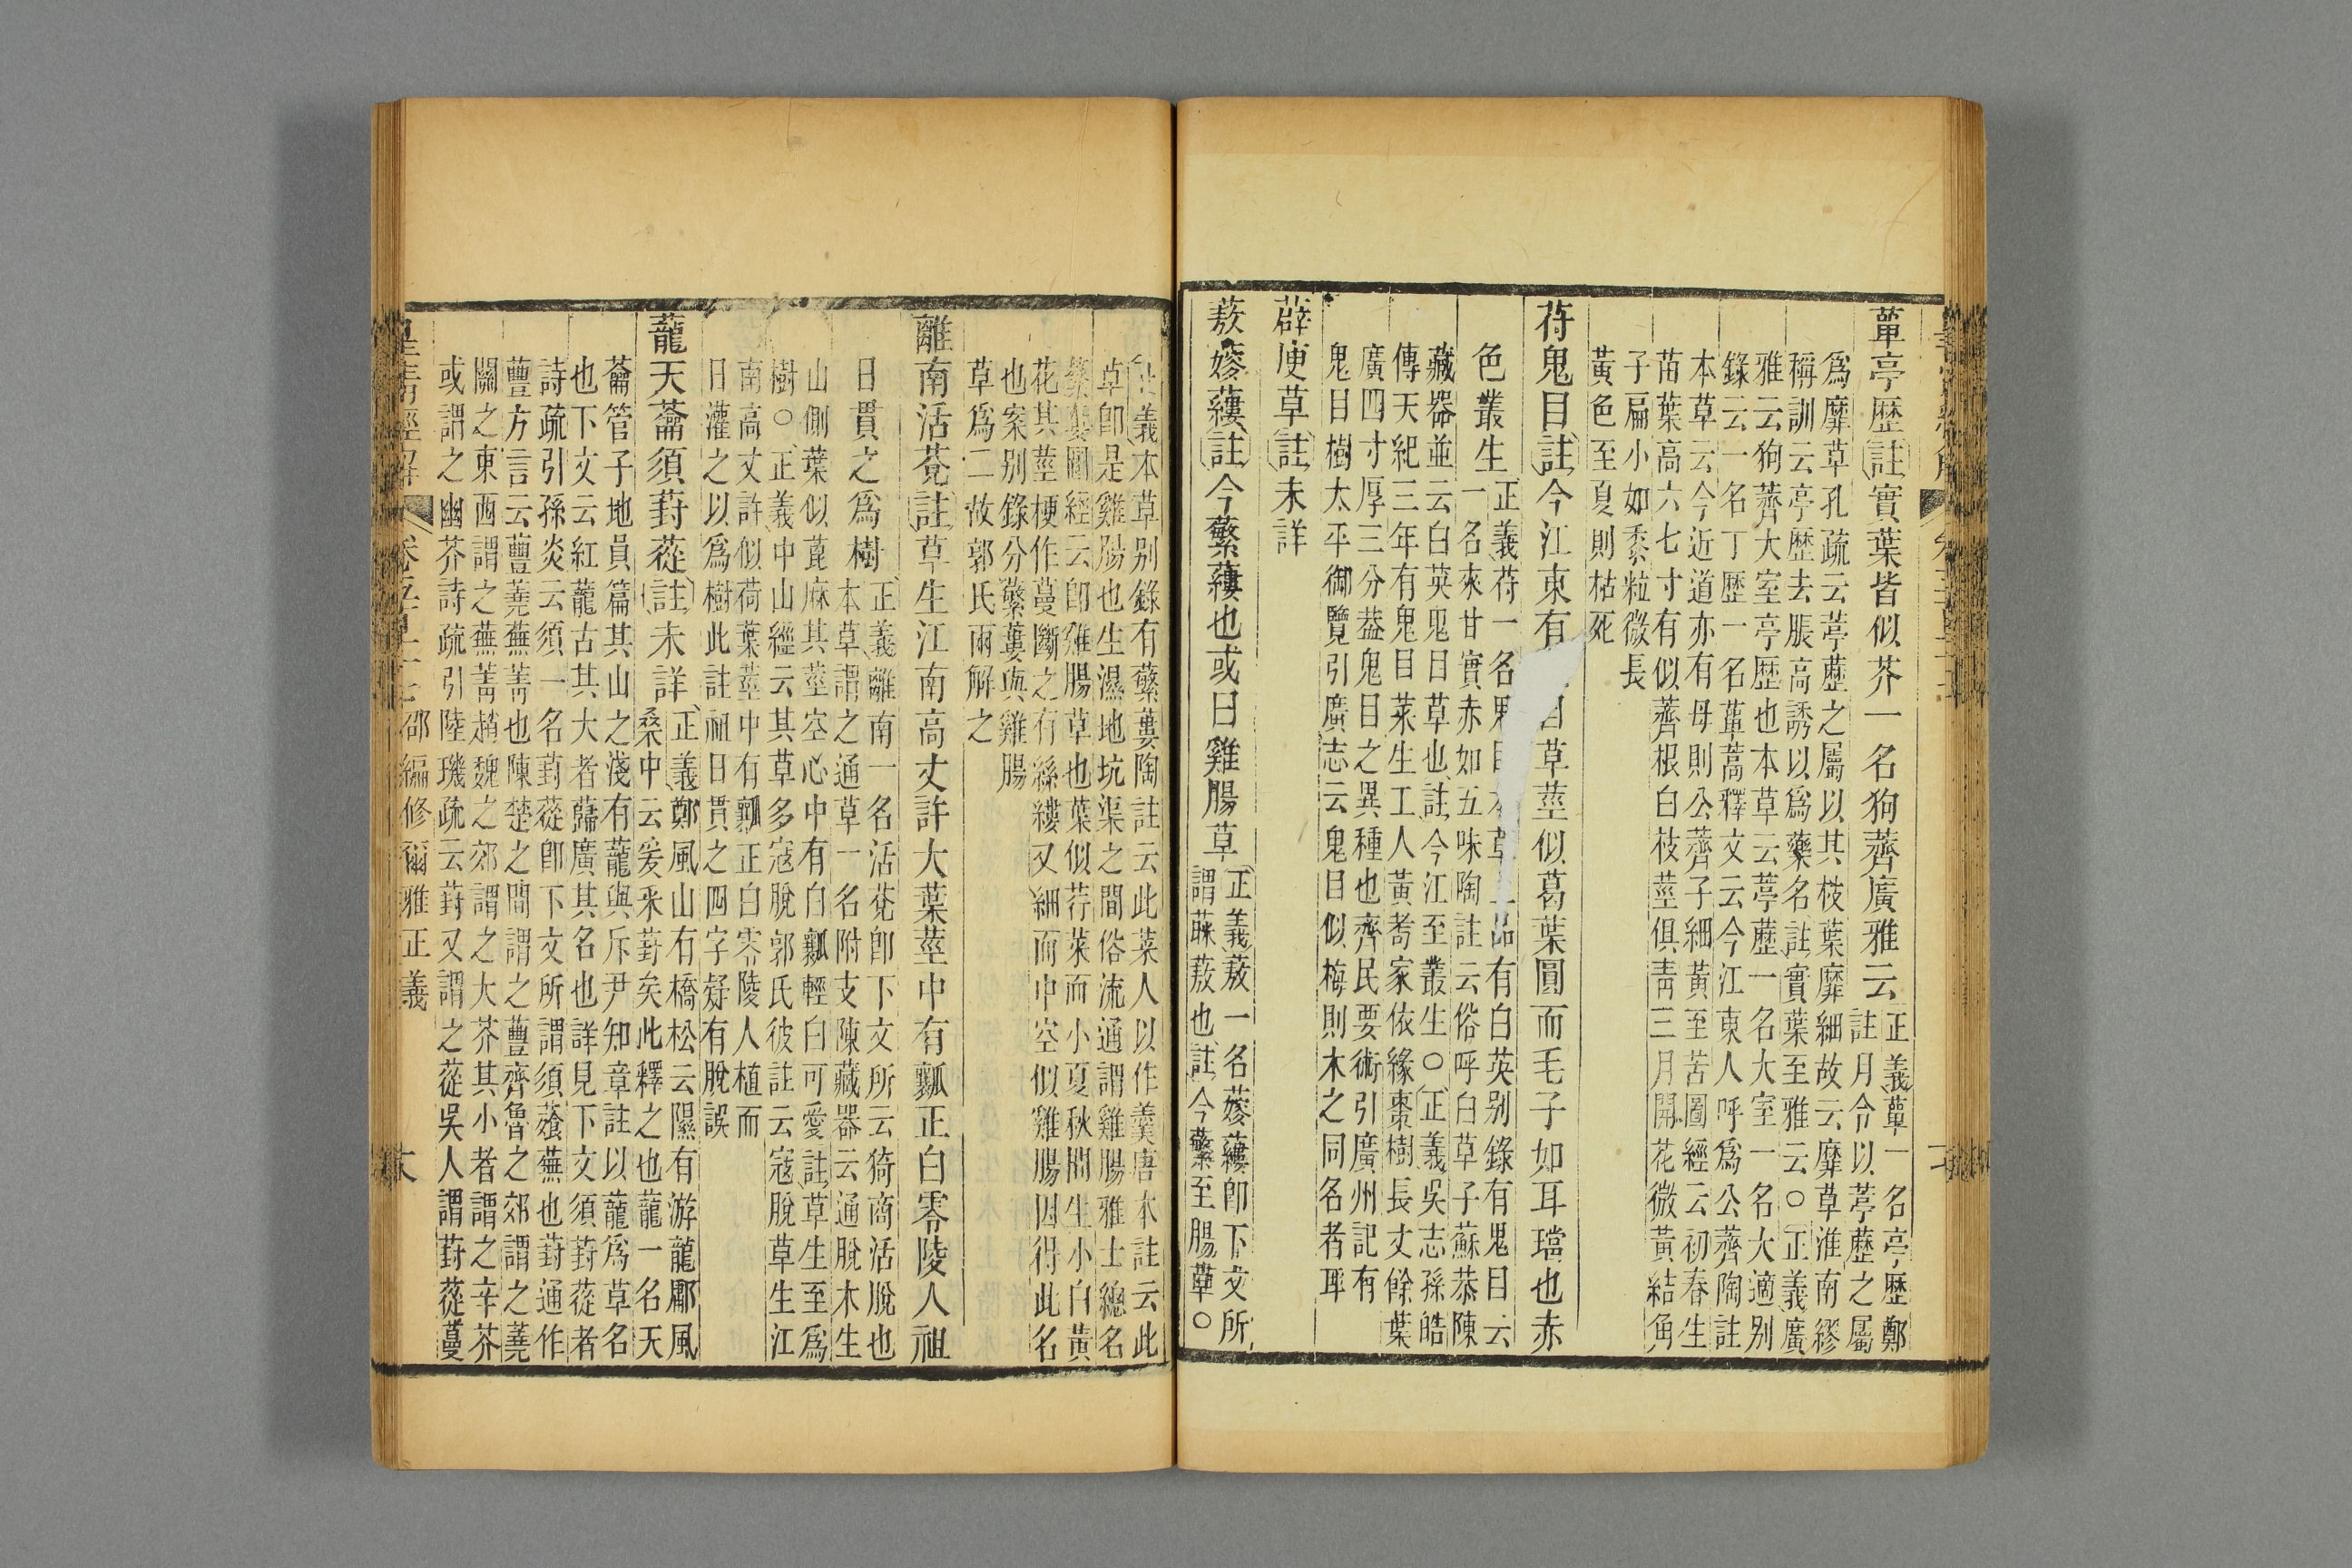 蕇亭歷註實葉皆似芥一名狗薺廣雅云
正義蕇一名亭歷鄭
註月令以葶藶之屬
爲靡草孔疏云葶藶之屬以其枝葉靡細故云靡草淮南繆
稱訓云亭歷去脹高誘以爲藥名註實葉至雅云○正義廣
雅云狗薺大室亭歷也本草云葶藶一名大室一名大適别
錄云一名丁歷一名蕇蒿釋文云今江東人呼爲公薺陶註
本草云今近道亦有母則公薺子細黃至苦圖經云初春生
苗葉高六七寸有似薺根白枝莖俱靑三月開花微黃結角
子扁小如黍粒微長
黃色至夏則枯死
苻鬼目註今江東有 目草莖似葛葉圓而毛子如耳璫也赤
色叢生
正義苻一名鬼目 草 品有白英别錄有鬼目云
一名來甘實赤如五味陶註云俗呼白草子蘇恭陳
藏器並云白英鬼目草也註今江至叢生○正義吳志孫皓
傳天紀三年有鬼目菜生工人黃耈家依緣棗樹長丈餘葉
廣四寸厚三分葢鬼目之異種也齊民要術引廣州記有
鬼目樹太平御覽引廣志云鬼目似梅則木之同名者耳
薜庚草註未詳
蔜䕅蔞註今蘩蔞也或曰雞腸草
正義蔜一名䕅蔞卽下文所
謂蕀蔜也註今蘩至腸草○
義本草别錄有蘩蔞陶註云此菜人以作羹唐本註云此
草卽是雞腸也生濕地坑渠之間俗流通謂雞腸雅士總名
蘩蔞圖經云卽雞腸草也葉似荇菜而小夏秋間生小白黃
花其莖梗作蔓斷之有絲縷又細而中空似雞腸因得此名
也案别錄分蘩蔞與雞腸
草爲二故郭氏兩解之
離南活莌註草生江南高丈許大葉莖中有瓤正白零陵人祖
日貫之爲樹
正義離南一名活莌卽下文所云猗商活脫也
本草謂之通草一名附支陳藏器云通脫木生
山側葉似萞麻其莖空心中有白瓤輕白可愛註草生至爲
樹○正義中山經云其草多寇脫郭氏彼註云寇脫草生江
南高丈許似荷葉莖中有瓤正白零陵人植而
日灌之以爲樹此註祖日貫之四字疑有脫誤
蘢天蘥須葑蓯註未詳
正義鄭風山有橋松云隰有游龍鄘風
桑中云爰采葑矣此釋之也蘢一名天
蘥管子地員篇其山之淺有蘢與斥尹知章註以蘢爲草名
也下文云紅蘢古其大者蘬廣其名也詳見下文須葑蓯者
詩疏引孫炎云須一名葑蓯卽下文所謂須薞蕪也葑通作
蘴方言云蘴蕘蕪菁也陳楚之間謂之蘴齊魯之郊謂之蕘
關之東西謂之蕪菁趙魏之郊謂之大芥其小者謂之辛芥
或謂之幽芥詩疏引陸璣疏云葑又謂之蓯吳人謂葑蓯蔓
皇淸經解 卷五百十七 邵編修爾雅正義